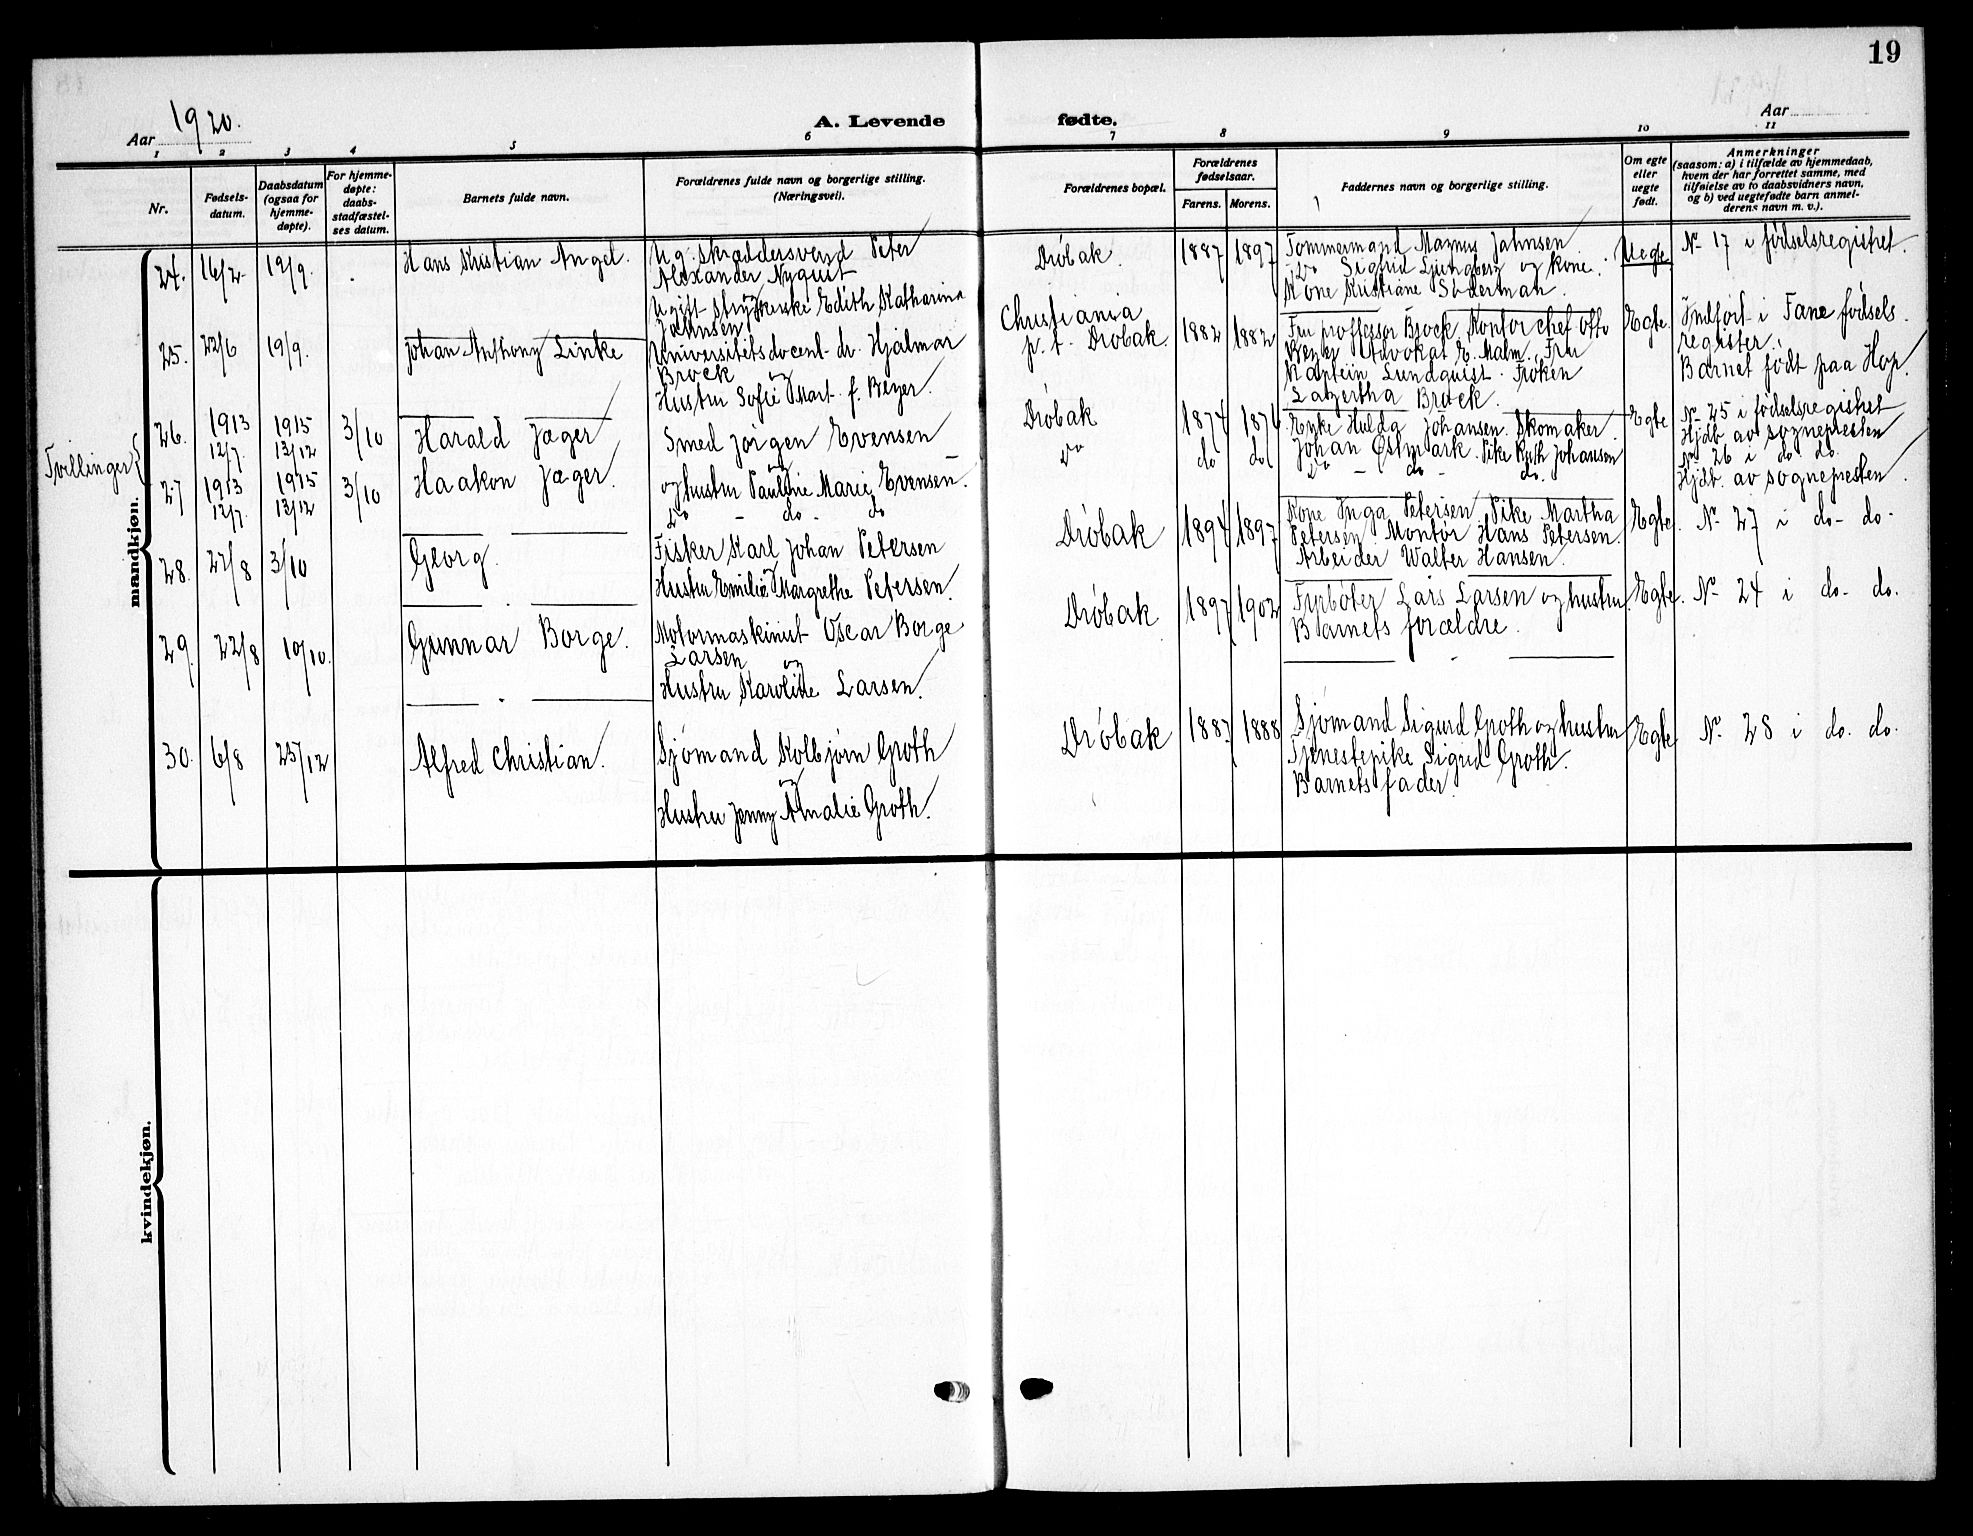 19
Aar 1920.
A. Levende fødte.
Aar
1 2 3 4 5 6 7 8 9 10 11
Nr.
Fødsels-
datum.
Daabsdatum
(ogsaa for
hjemme-
døpte).
For hjemme-
døpte:
daabs-
stadfæstel-
ses datum.
Barnets fulde navn.
Forældrenes fulde navn og borgerlige stilling.
(Næringsvei).
Forældrenes bopæl.
Forældrenes
fødselsaar.
Farens. Morens.
Faddernes navn og borgerlige stilling.
Om egte
eller
uegte
født.
Anmerkninger
(saasom: a) i tilfælde av hjemmedaab,
hvem der har forrettet samme, med
tilføielse av to daabsvidners navn,
og b) ved uegtefødte barn anmel-
derens navn m. v.).
mandkjøn.
24. 16/2 19/9. Hans Kristian Angel.
Ug. Skræddersvend Peter
Alexander Nyquist
og
Ugift Strykerske Edith Katharina
Jahnsen
Drøbak. 1887 1897
Tømmermand Magnus Jahnsen
Do Sigfrid Ljungberg og kone.
Kone Kristiane Søderman.
Uegte
No 17 i fødselsregistret.
25. 22/6 19/9. Johan Anthony Linke
Universitetsdocent dr. Hjalmar
Brock
og
Hustru Sofie Mart. f. Beyer.
Christiania
p. t. Drøbak. 1882 1882
Fru proffessor Brock, Kontorchef Otto
Beyer Advokat E. Malm, Fru
Kaptein Lundquist. Frøken
Brock.
Egte.
Indført i Fane fødsels
register.
Barnet født paa Hop.
Tvillinger
26. 1913 12/7. 1915 13/12 3/10 Harald Jæger
Smed Jørgen Evensen
og
og hustru Pauline Marie Evensen.
Drøbak 1874 1874
Enke Hulda Johansen. Skomaker
Johan Østmark. Pike Ruth Johansen
Egte
No 25 i fødselsregistret
Hjdb. av sognepresten
27 1913 12/7. 1915 13/12 3/10 Haakon Jæger.
Do - do - do
Do do do
Do - do - do.
No 26 i do do.
Hjdb. av sognepresten.
28. 27/8 3/10 Georg.
Fisker Karl Johan Petersen
og
Hustru Emilie Margrethe Petersen.
Drøbak 1894 1897
Kone Inga Petersen, Pike Martha
Petersen Montør Hans Petersen.
Arbeider Walter Hansen.
Egte.
No 27 i do - do -
29. 22/8 10/10. Gunnar Borge.
Motormaskinist Oscar Borge
Larsen
og
Hustru Karoline Larsen.
Drøbak 1897 1902
Fyrbøter Lars Larsen og hustru.
Barnets forældre.
Egte.
No 24 i do - do.
30. 6/8 25/12 Alfred Christian.
Sjømand Kolbjørn Groth
og
Hustru Jenny Amalie Groth.
Drøbak 1887 1888
Sjømand Sigurd Groth og hustru
Tjenestepike Sigrid Groth.
Barnets fader.
Egte
No 28 i do. do.
kvindekjøn.